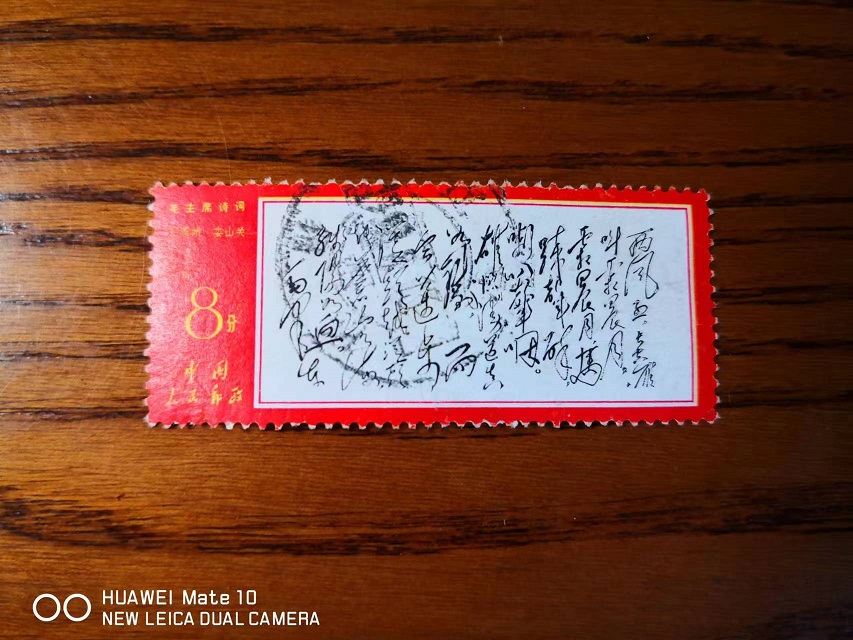 毛主席诗词
娄山关
8分
中国
人民邮政
西风烈 长空雁
叫霜晨月。
霜晨月 马
蹄声碎
喇叭声咽。
雄关漫道真
如铁 而
今迈步
残阳如血
毛泽东
HUAWEI Mate 10
NEW LEICA DUAL CAMERA